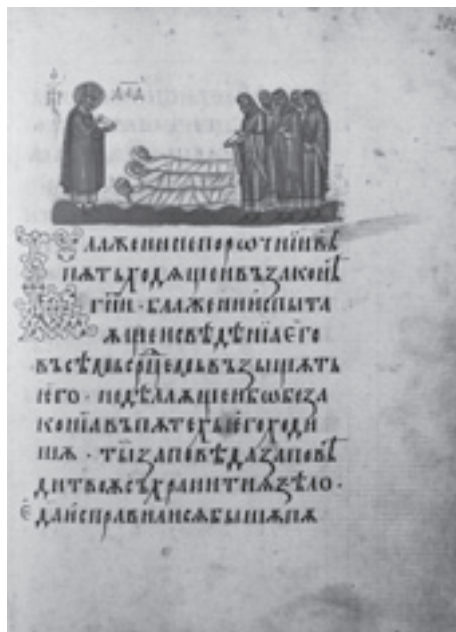 д҃вд
Блаженинепорѡчнїивъ
пѫтьходѧщеивъзаконѣ
гн҃и · блаженииспыта
ѧщеисвѣдѣнїаєго
въсѣмьср҃цемьвъзыщѫть
его · недѣлаѫщеибѡбеза
конїавъпѫтехьегоходи
шѧ · тызаповѣдазаповѣ
дитвоѫсъхранитиѕѣло ·
даисправилисѧбышѧпѫ